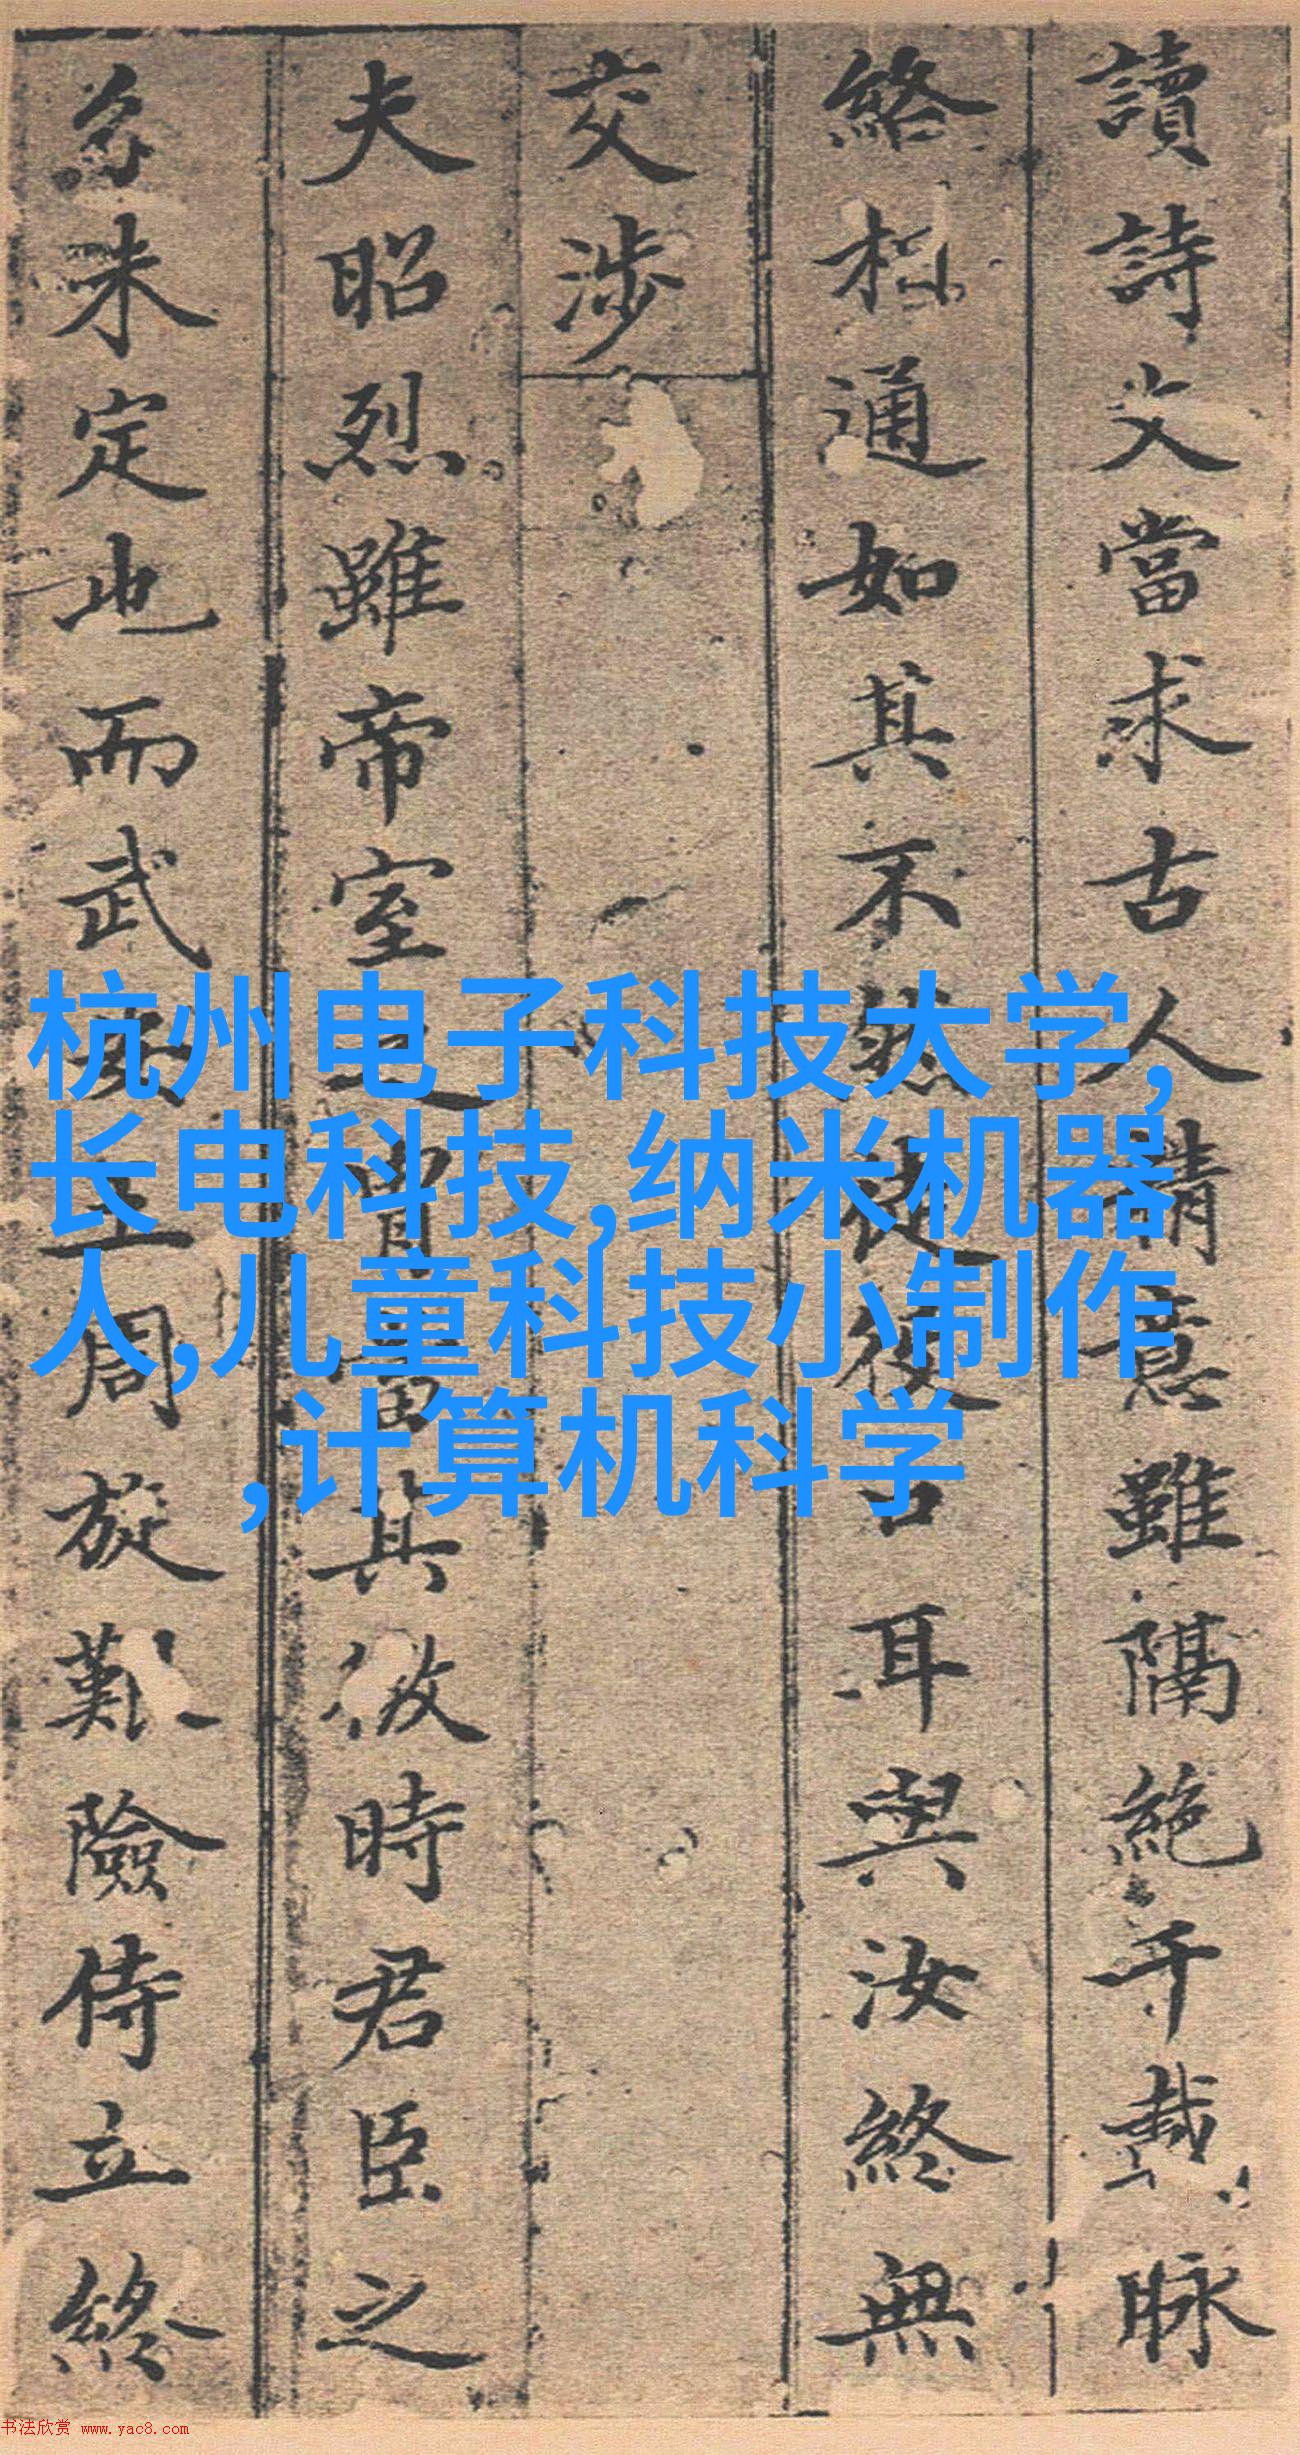 讀詩文當求古人精意雖隔絶千載脉
絡相通如其不然徒役口耳與汝終無
交涉
夫昭烈雖帝室之胄當其微時君臣之
分未定也而武安王周旋艱險侍立終
杭州电子科技大学,
长电科技,纳米机器
人,儿童科技小制作
,计算机科学
书法欣赏 www.yac8.com